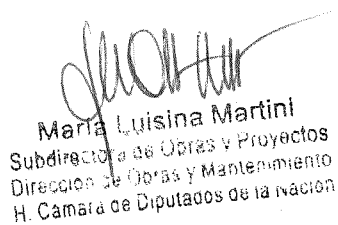 María Luisina Martini
Subdirectora de Obras y Proyectos
Dirección de Obras y Mantenimiento
H. Cámara de Diputados de la Nación